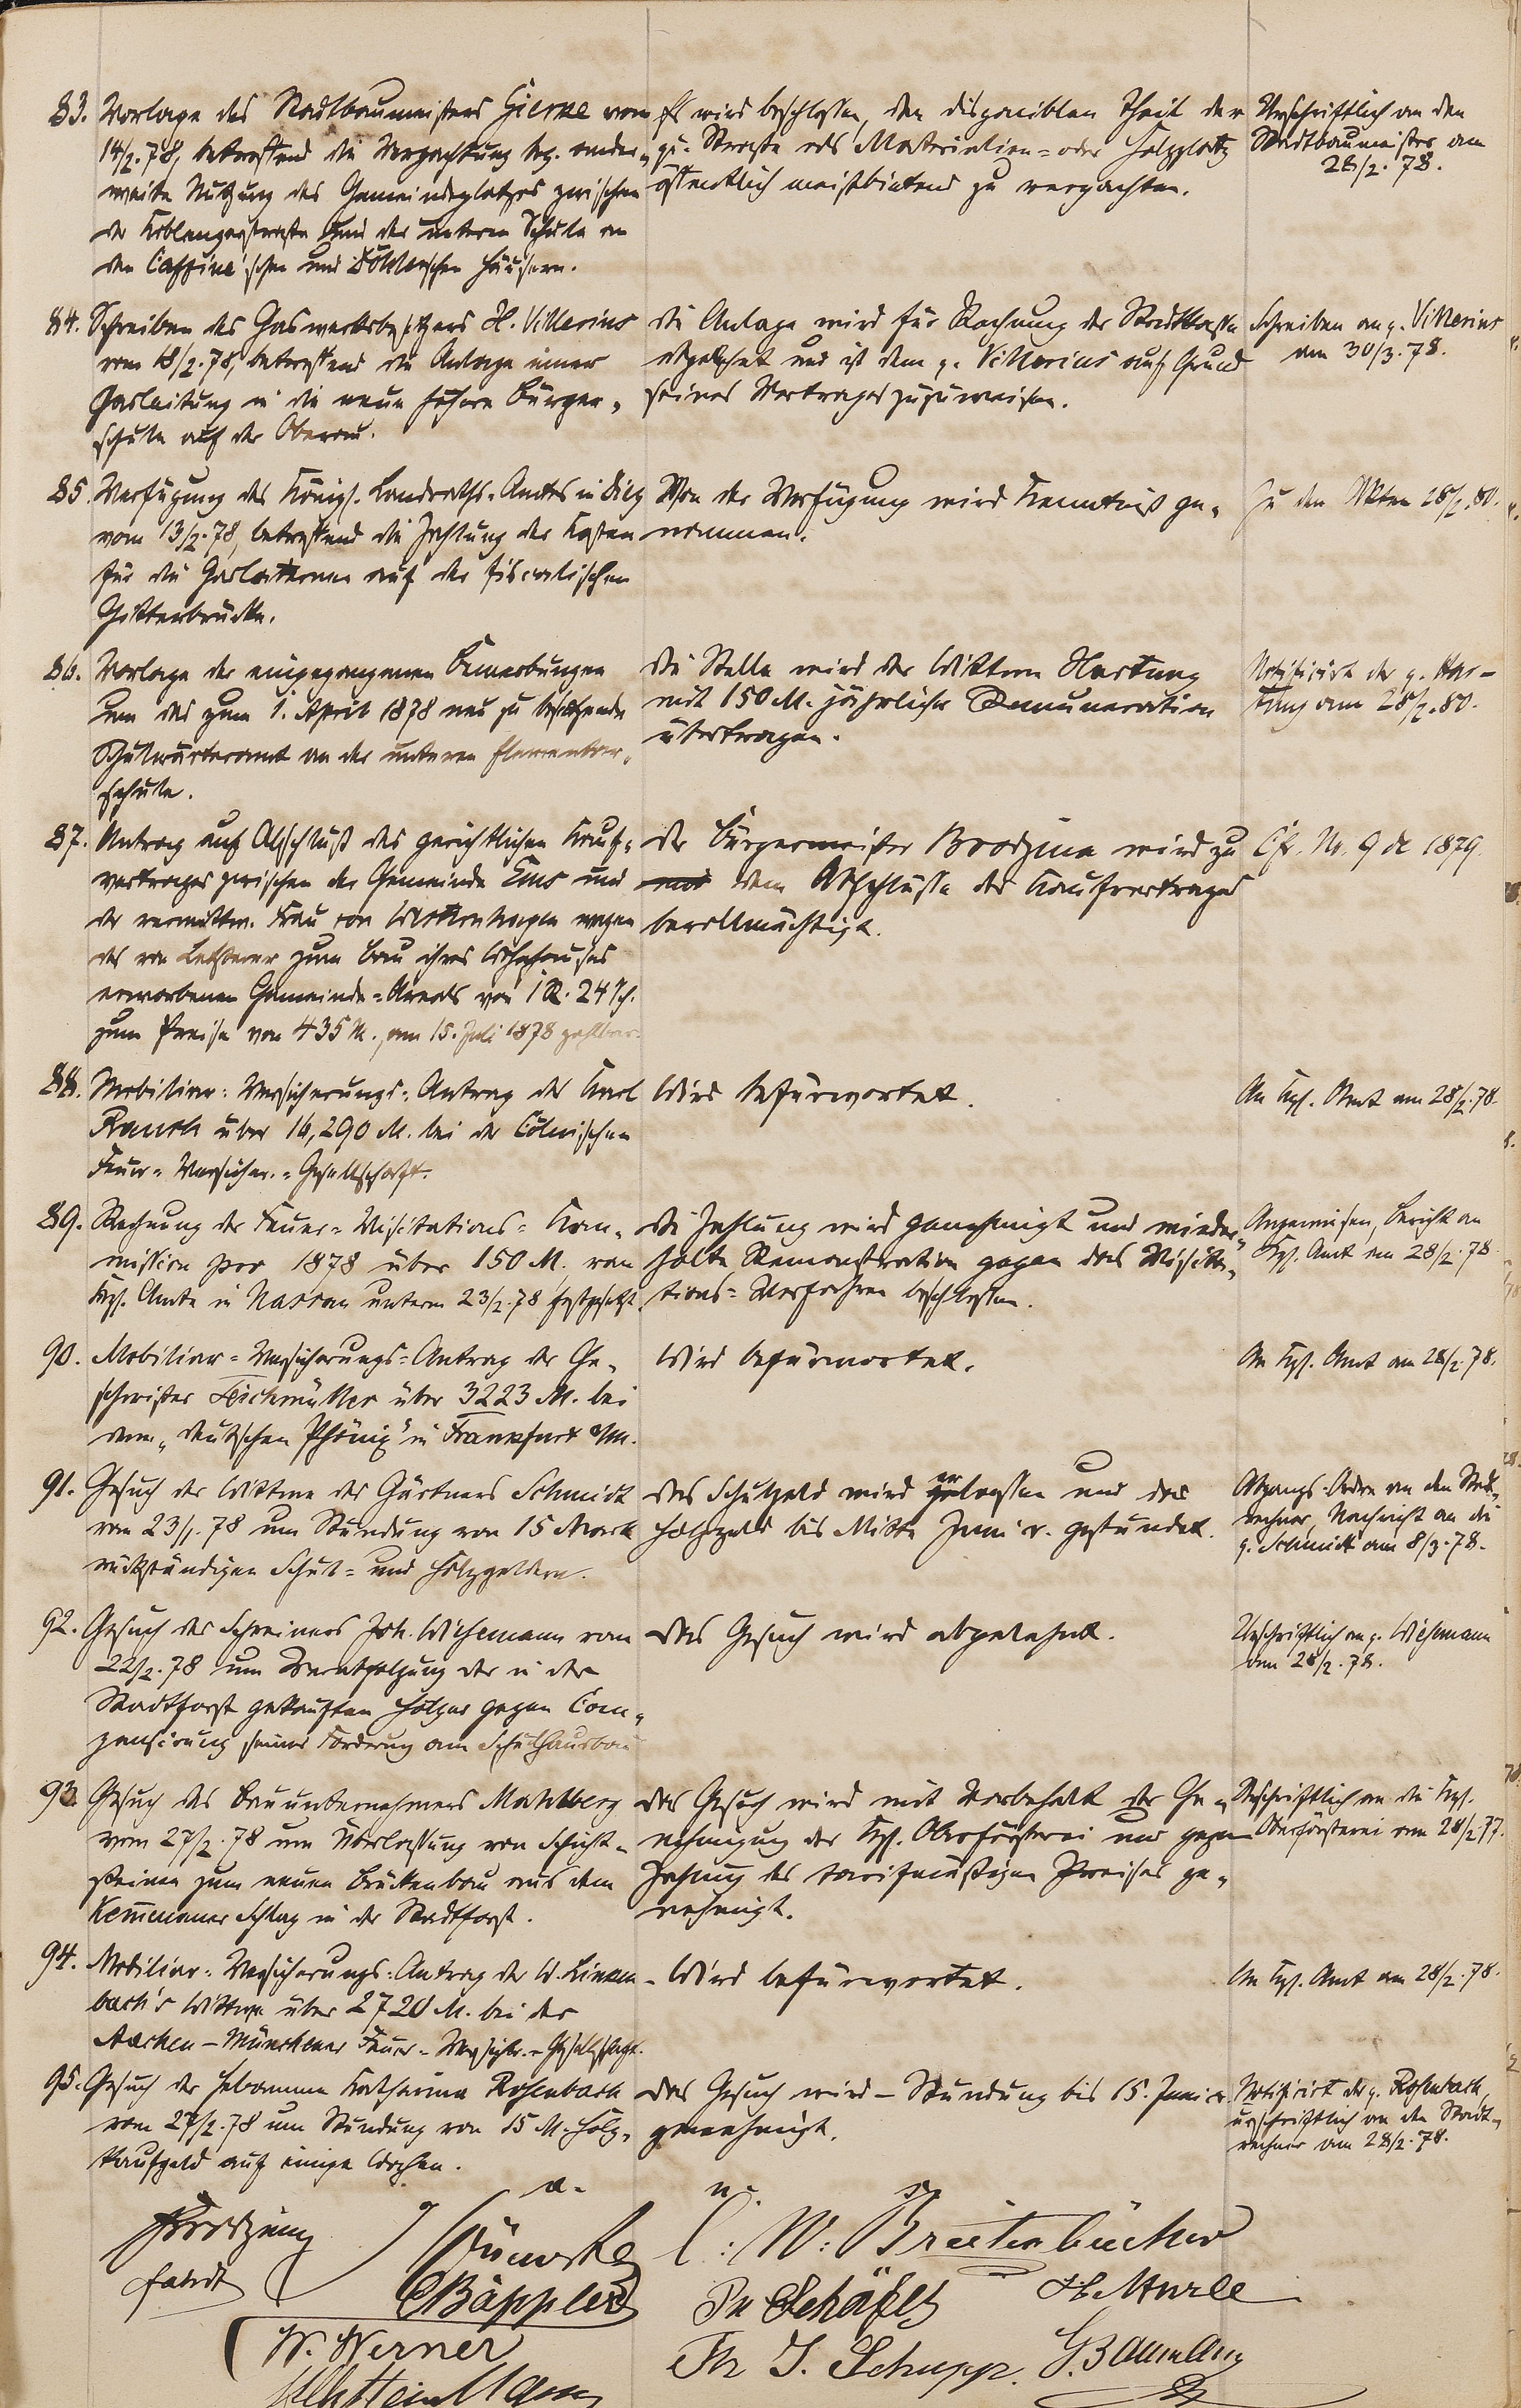 83. Vorlage des Stadtbaumeisters Gierke vom
14/2.78, betreffend die Verpachtung bez. ander-
weite Nutzung des Gemeindeplatzes zwischen
der Koblenzerstraße und der unteren Schule an
den Caffine'schen und Döhler'schen Häusern.
Es wird beschlossen, den disponiblen Theil der
qu. Straße als Materialien- oder Holzplatz
öffentlich meistbietend zu verpachten.
Urschriftlich an den
Stadtbaumeister am
28/2.78.
84. Schreiben des Gaswerksbesitzers H. Villerius
vom 18/2.78, betreffend die Anlage einer
Gasleitung in die neue höhere Bürger-
schule auf der Oberau.
Die Anlage wird für Rechnung der Stadtkasse
abgelehnt und ist dem p. Villerius auf Grund
seines Vertrages zuzuweisen.
Schreiben an p. Villerius
am 30/3.78.
85. Verfügung des Königl. Landraths-Amtes in Diez
vom 13/2.78, betreffend die Zahlung der Kosten
für die Gaslaternen auf der fiscalischen
Gitterbrücke.
Von der Verfügung wird Kenntniß ge-
nommen.
Zu den Akten 28/2.80.
86. Vorlage der eingegangenen Bewerbungen
um das zum 1. April 1878 neu zu besetzende
Schulwärteramt an der unteren Elementar-
schule.
Die Stelle wird der Wittwe Hartung
mit 150 M. jährlicher Remuneration
übertragen.
Notificirt der p. Har-
tung am 28/2.80.
87. Antrag auf Abschluß des gerichtlichen Kauf-
vertrages zwischen der Gemeinde Ems und
der verwittw. Frau von wegen
des von Letzterer zum Bau ihres Wohnhauses
erworbenen Gemeinde-Areals von 1 R. 24 Sch.
zum Preise von 435 M., am 15. Juli 1878 zahlbar.
Der Bürgermeister Brodzina wird zu
dem Abschlusse des Kaufvertrages
bevollmächtigt.
Cfr. Nr. 9 de 1879.
88. Mobiliar-Versicherungs-Antrag des Karl
Rauch über 16,290 M. bei der Cölnischen
Feuer-Versicher.-Gesellschaft.
Wird befürwortet.
An Kgl. Amt am 28/2.78.
89. Rechnung der Feuer-Visitations-Kom-
mission pro 1878 über 150 M., vom
Kgl. Amte in Nassau unterm 23/2.78 festgesetzt.
Die Zahlung wird genehmigt und wieder-
holte Remonstration gegen das Visita-
tions-Verfahren beschlossen.
Angewiesen, Bericht an
Kgl. Amt am 28/2.78.
90. Mobiliar-Versicherungs-Antrag der Ge-
schwister Teichmüller über 3223 M. bei
dem "Deutschen Phönix" in Frankfurt a/M.
Wird befürwortet.
An Kgl. Amt am 28/2.78.
91. Gesuch der Wittwe des Gärtners Schmidt
vom 23/1.78 um Stundung von 15 Mark
rückständigen Schul- und Holzgeldern.
Das Schulgeld wird erlassen und das
Holzgeld bis Mitte Juni c. gestundet.
Abgangs-Ordre an den Stadt-
rechner, Nachricht an die
p. Schmidt am 8/3.78.
92. Gesuch des Schreiners Joh. Wiesemann vom
22/2.78 um Verabfolgung der in der
Stadtforst gekauften Hölzer gegen Com-
pensirung seiner Forderung am Schulhausbau
Das Gesuch wird abgelehnt.
Urschriftlich an p. Wiesemann
am 28/2.78.
93. Gesuch des Bauunternehmers Mahlberg
vom 27/2.78 um Überlassung von Schicht-
steinen zum neuen Brückenbau aus dem
Kemmenauer Schlag in der Stadtforst.
Das Gesuch wird mit Vorbehalt der Ge-
nehmigung der Kgl. Oberförsterei und gegen
Zahlung des tarifmäßigen Preises ge-
nehmigt.
Urschriftlich an die Kgl.
Oberförsterei am 28/2.77.
94. Mobiliar-Versicherungs-Antrag der W. Linken-
bach's Wittwe über 2720 M. bei der
Aachen-Münchener Feuer-Versicher.-Gesellschaft.
Wird befürwortet.
An Kgl. Amt am 28/2.78.
95. Gesuch der Hebamme Katharina Rosenbach
vom 27/2.78 um Stundung von 15 M. Holz-
kaufgeld auf einige Wochen.
Das Gesuch wird - Stundung bis 15. Juni c.
genehmigt.
Notificirt der p. Rosenbach,
urschriftlich an den Stadt-
rechner am 28/2.78.
a. u. s.
Brodzina
C: W: Breitenbücher
C Bäppler
Ph Schäfer
W. Werner
Fr J. Schupp.
G. Baumann